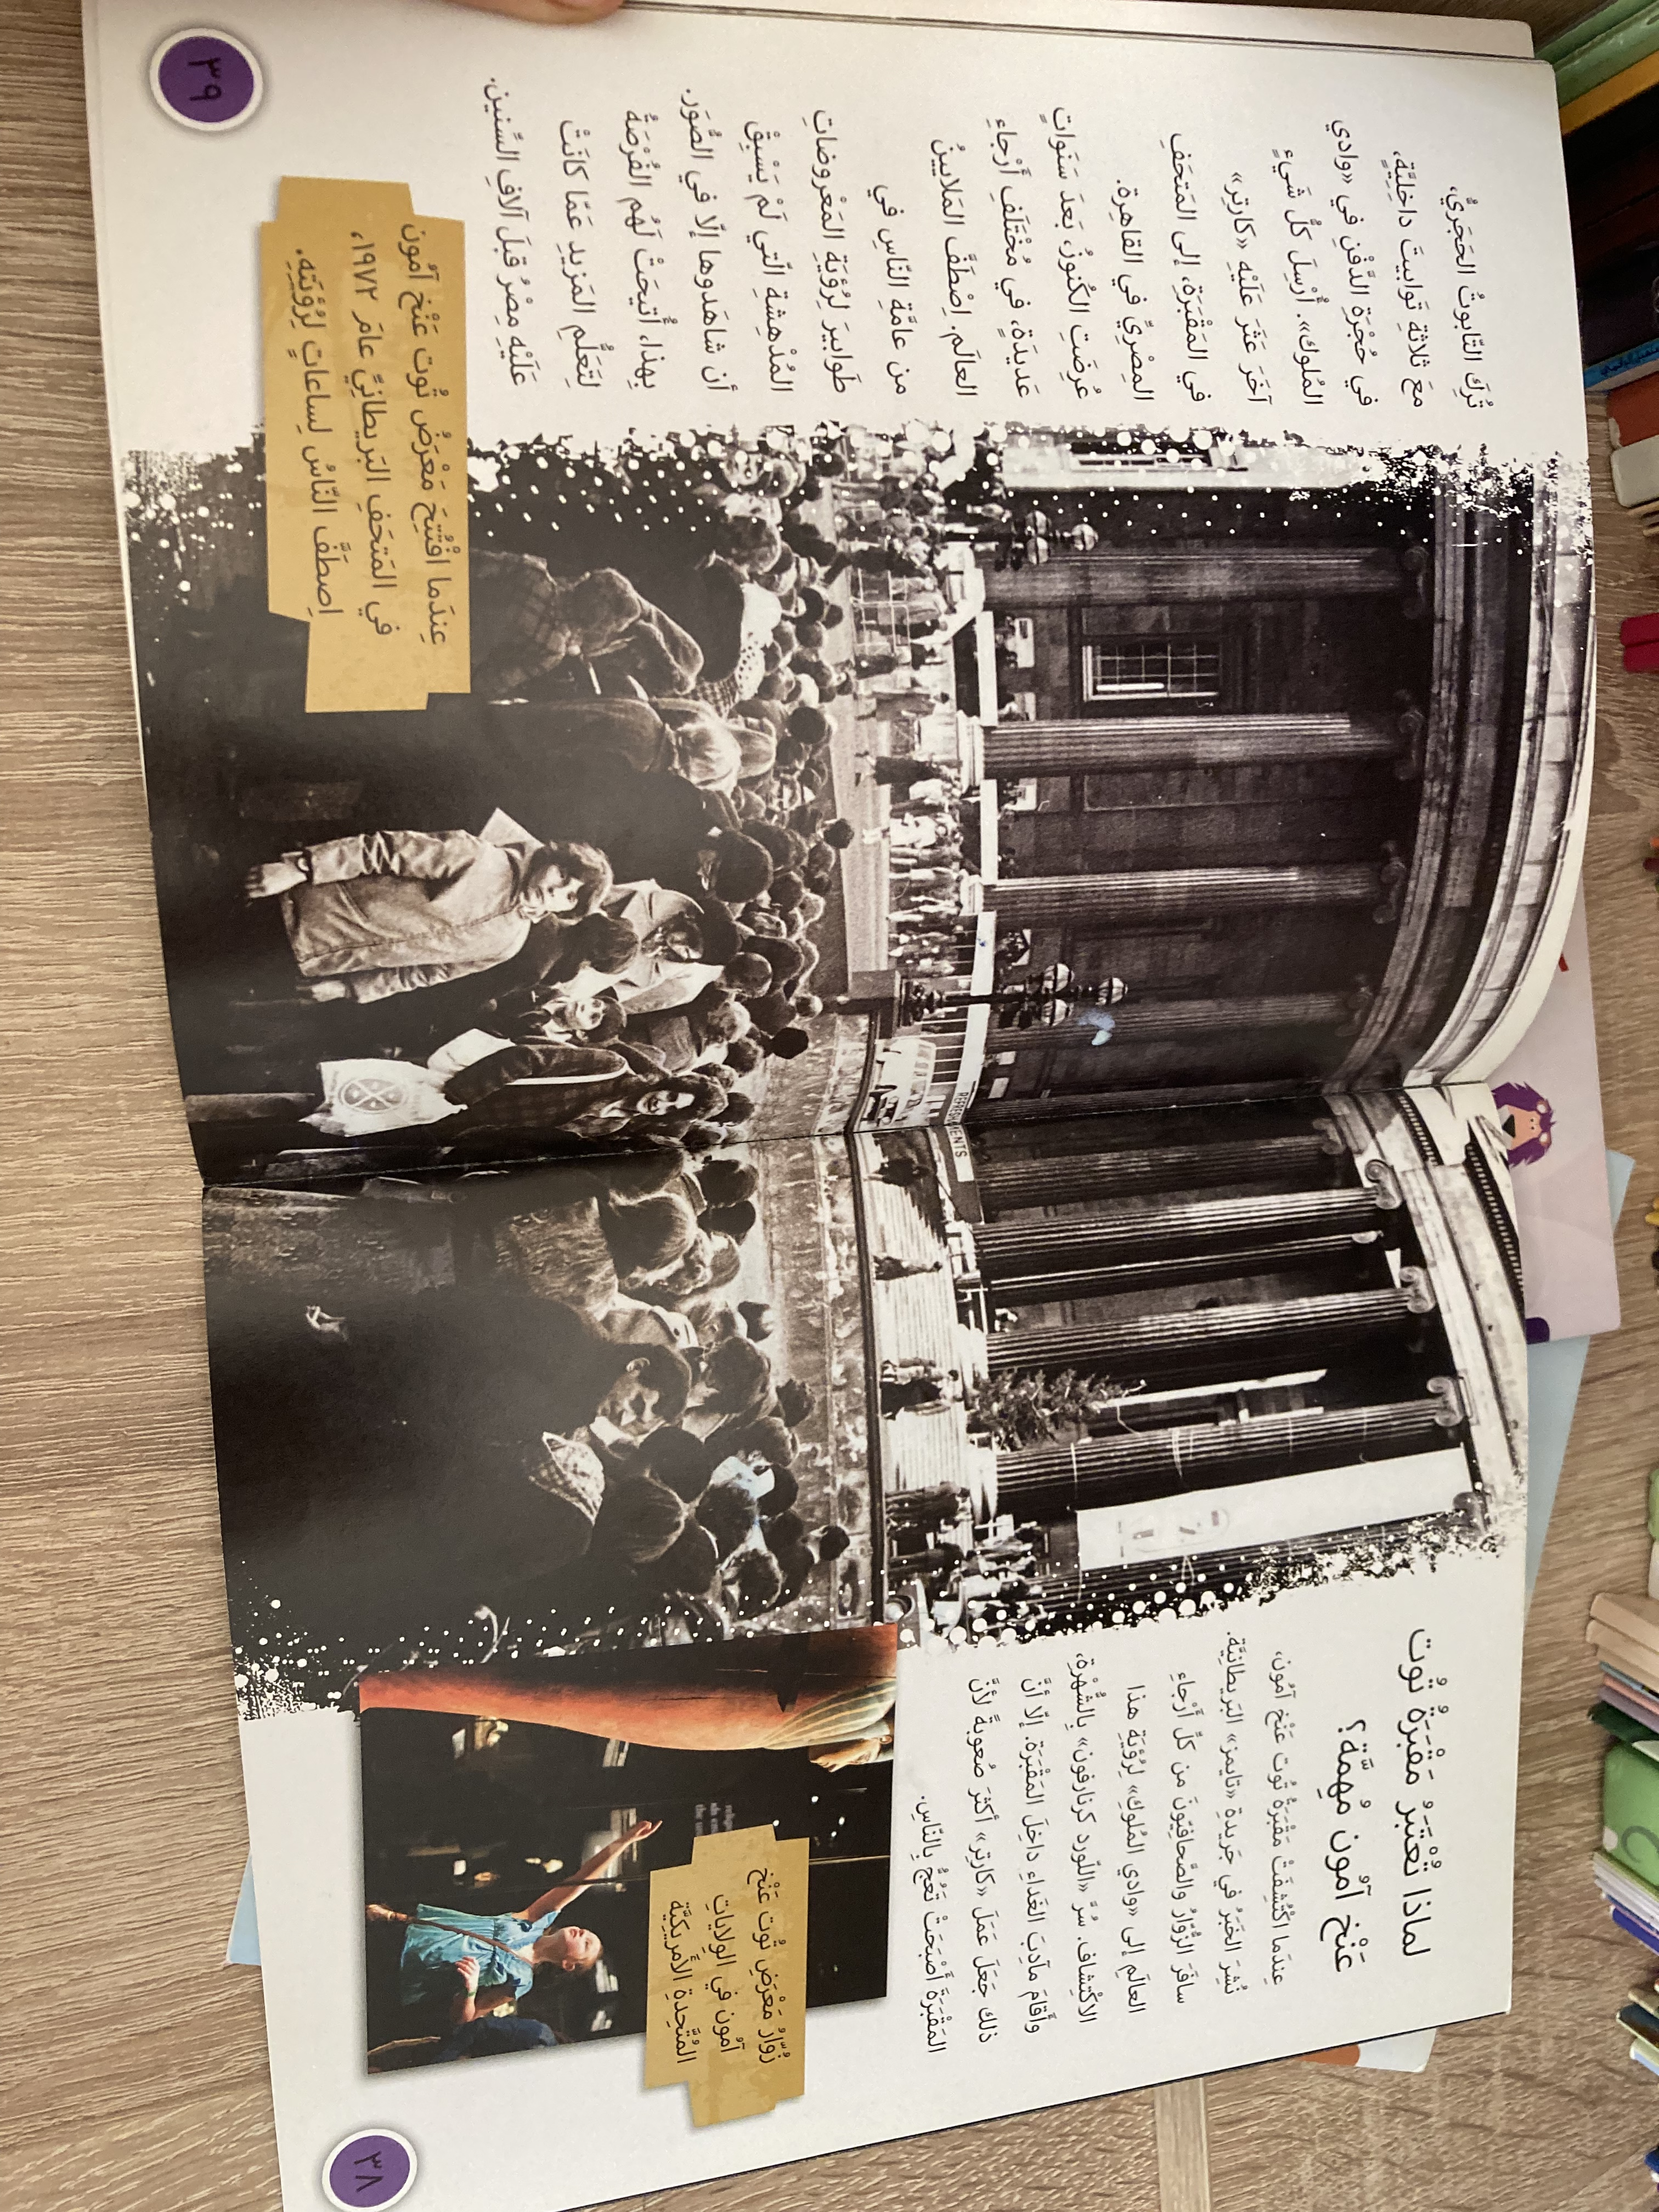 لماذا تُعْتَبَرُ مَقْبَرَةُ تُوت
عَنْخ آمُون مُهِمَّة؟
عِندَما اكْتُشِفَتْ مَقْبَرَةُ تُوت عَنْخ آمُون،
نُشِرَ الخَبَرُ في جَريدةِ «تايمز» البَريطانيَّة.
سافَرَ الزُّوّارُ والصَّحافِيّونَ من كلِّ أَرْجاءِ
العالَمِ إلى «وادي المُلوك» لِرُؤيَةِ هذا
الاكْتِشاف. سُرَّ «اللّورد كرنارفون» بِالشُّهْرَةِ،
وأَقامَ مآدِبَ الغَداءِ داخِلَ المَقْبَرَة. إلّا أنَّ
ذلك جَعَلَ عَمَلَ «كارتِر» أكثرَ صُعوبةً لأنَّ
المَقْبَرَةَ أَصْبَحَتْ تَعِجُّ بِالنّاسِ.
زُوّارُ مَعْرَضِ تُوت عَنْخ
آمُون في الوِلاياتِ
المُتَّحِدةِ الأَمريكيَّة
٣٨
REFRESHMENTS
تُرِكَ التّابوتُ الحَجَريُّ،
مَعَ ثلاثةِ تَوابيتَ داخِليَّة،
في حُجْرَةِ الدَّفْنِ في «وادي
المُلوك». أُرْسِلَ كلُّ شَيْءٍ
آخَرَ عَثَرَ عَلَيْهِ «كارتِر»
في المَقْبَرَة، إلى المَتحَفِ
المِصْرِيِّ في القاهِرة.
عُرِضَتِ الكُنوزُ، بَعدَ سَنَواتٍ
عَديدَة، في مُخْتَلَفِ أَرْجاءِ
العالَم. اِصْطَفَّ المَلايينُ
من عامَّةِ النّاسِ في
طَوابيرَ لِرُؤْيَةِ المَعْروضاتِ
المُدْهِشةِ الّتي لَمْ يَسْبِقْ
أن شاهَدوها إلّا في الصُّوَر.
بِهذا، أُتيحَتْ لَهُم الفُرْصَةُ
لِتَعَلُّمِ المَزيدِ عَمّا كانَتْ
عَلَيْهِ مِصْرُ قبلَ آلافِ السِّنين.
عِندَما افْتُتِحَ مَعْرَضُ تُوت عَنْخ آمُون
في المَتحَفِ البَريطانِيِّ عامَ ١٩٧٢،
اِصطَفَّ النّاسُ لِساعاتٍ لِرُؤْيَتِهِ.
٣٩